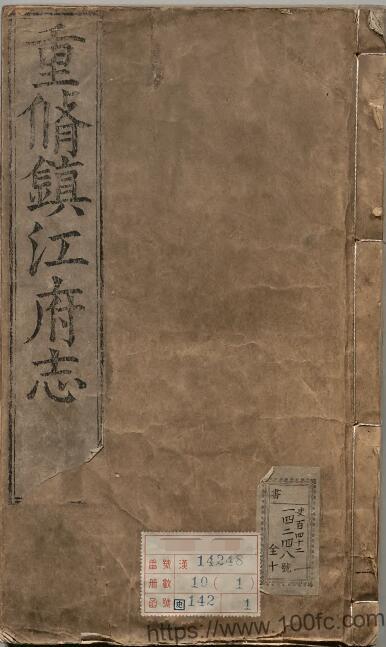 重脩鎮江府志
書
史百四十二
一四二四八號
全十
番號 漢 14248
冊數 10 ( 1 )
函號 142 1
https://www.100fc.com